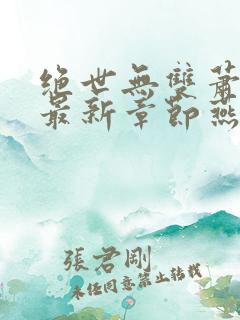 絕世無雙蕭
最新章節燕
張君剛
未經同意禁止轉載